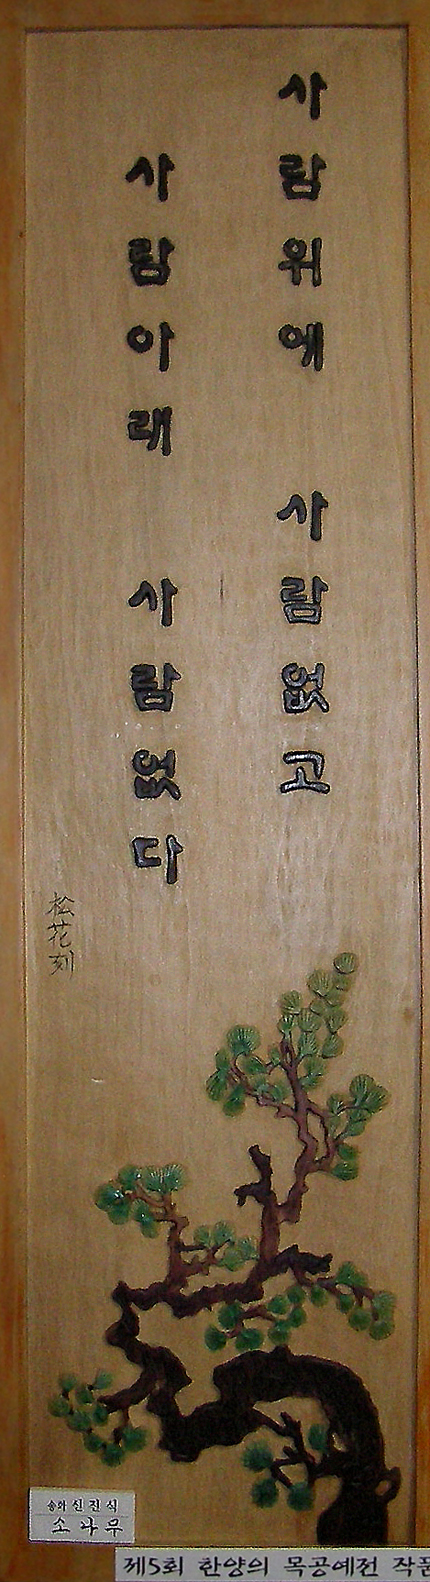 사람위에 사람없고
사람아래 사람없다
松花刻
송화 신진식
소나무
제5회 한양의 목공예전 작품